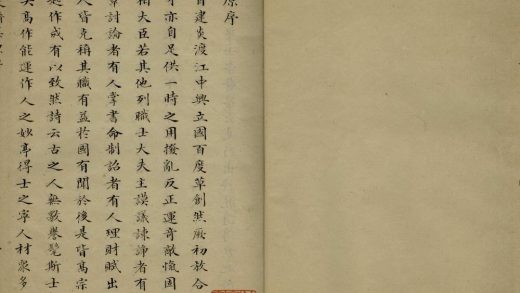 原序
建炎渡江中興立國百度草創然厥初合
才亦自足供一時之用撥亂反正運奇敵愾固
相大臣若其他列職士大夫主謨議諫諍者有
章討論者有人掌書命制詔者有人理財賦出
人皆克稱其職有益於國有聞於後是皆高宗
作或有以致然詩云古之人無斁譽髦斯士
矣高作能運作人之妙享得士之寧人材衆多